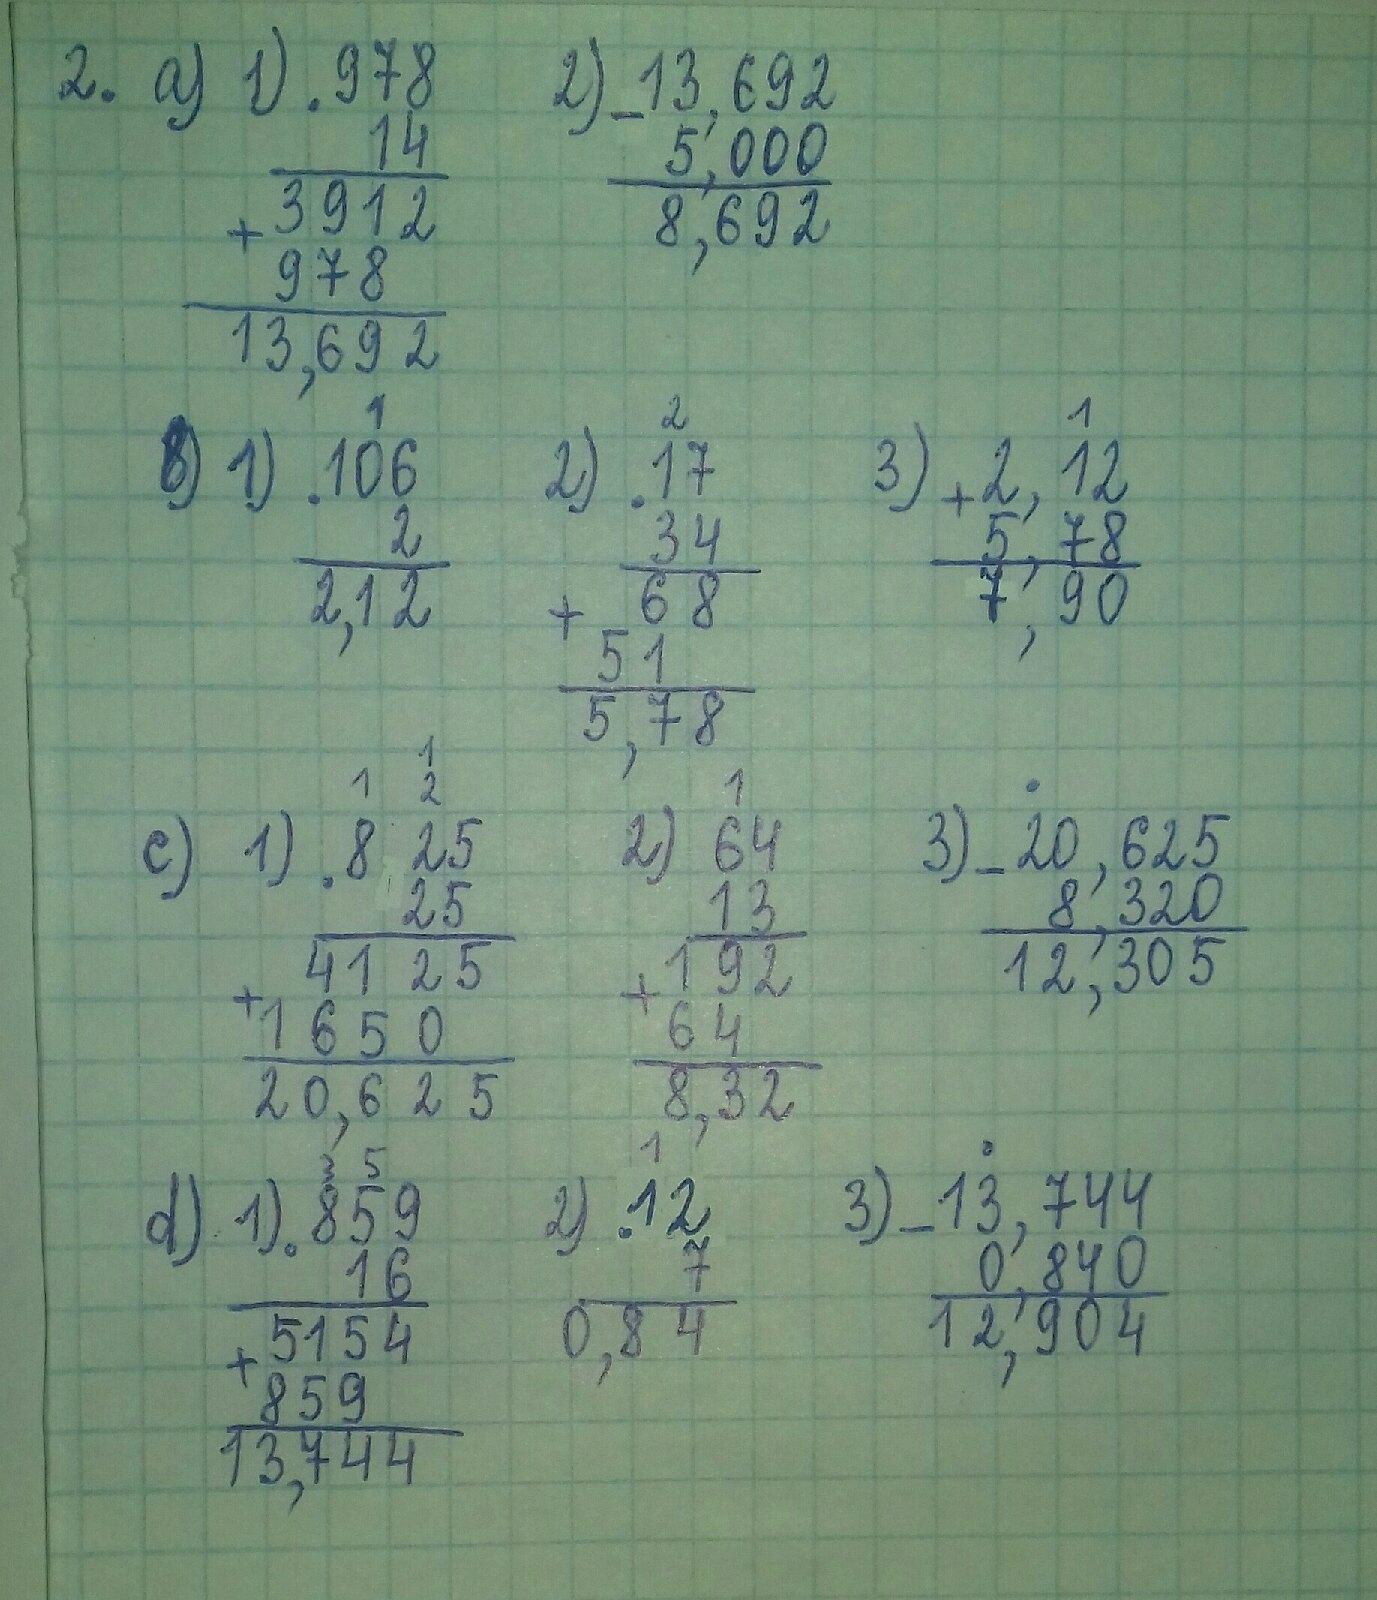 2. a) 1) .978 2) -13,692
14 5,000
3912 8,692
+
978
13,692
1 2 1
b) 1) .106 2) .17 3) +2,12
2 34 5,78
2,12 68 7,90
+
51
5,78
1
1 2 1
c) 1) .825 2) 64 3) -20,625
25 13 8,320
4125 192 12,305
+ +
1650 64
20,625 8,32
3 5 1
d) 1) .859 2) .12 3) -13,744
16 7 0,840
5154 0,84 12,904
+
859
13,744